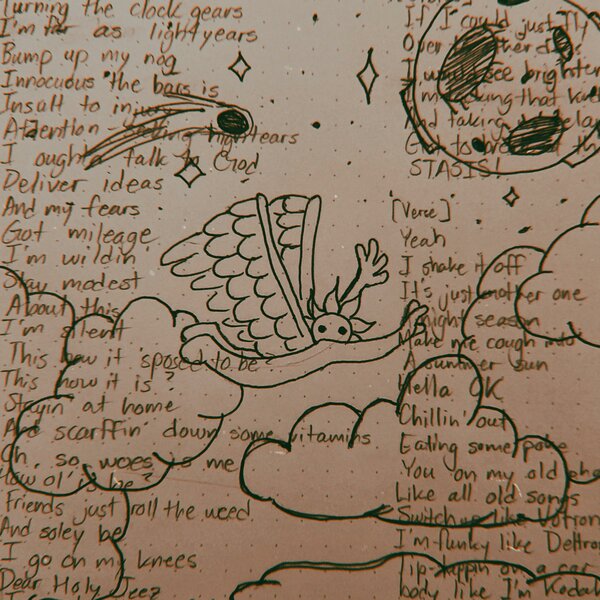 Turning the clock gears
I'm far as lightyears
Bump up my nog
Innocuous the bars is
Insalt to injury
Attention-selling nightears
I oughta talk to God
Deliver ideas
And my fears
Got mileage
I'm wildin'
Stay modest
About this
I'm silent
This how it 'sposed to be?
This how it is?
Stayin' at home
And scarffin' down some vitamins
Oh, so, woes is me
How ol' is he?
Friends just roll the weed
And soley be
I go on my knees
Dear Holy Jeez
If I could just fly
Over other
I would see brighter
that
And taking
Got to
STASIS!
[Verse]
Yeah
I shake it off
It's just another one
A night season
Make me cough into
A summer sun
Hella OK
Chillin' out
Eating some poke
You on my old
Like all old songs
Switch up like Voltron
I'm funky like Deltron
Tip-tappin on a car
body like I'm Kodak